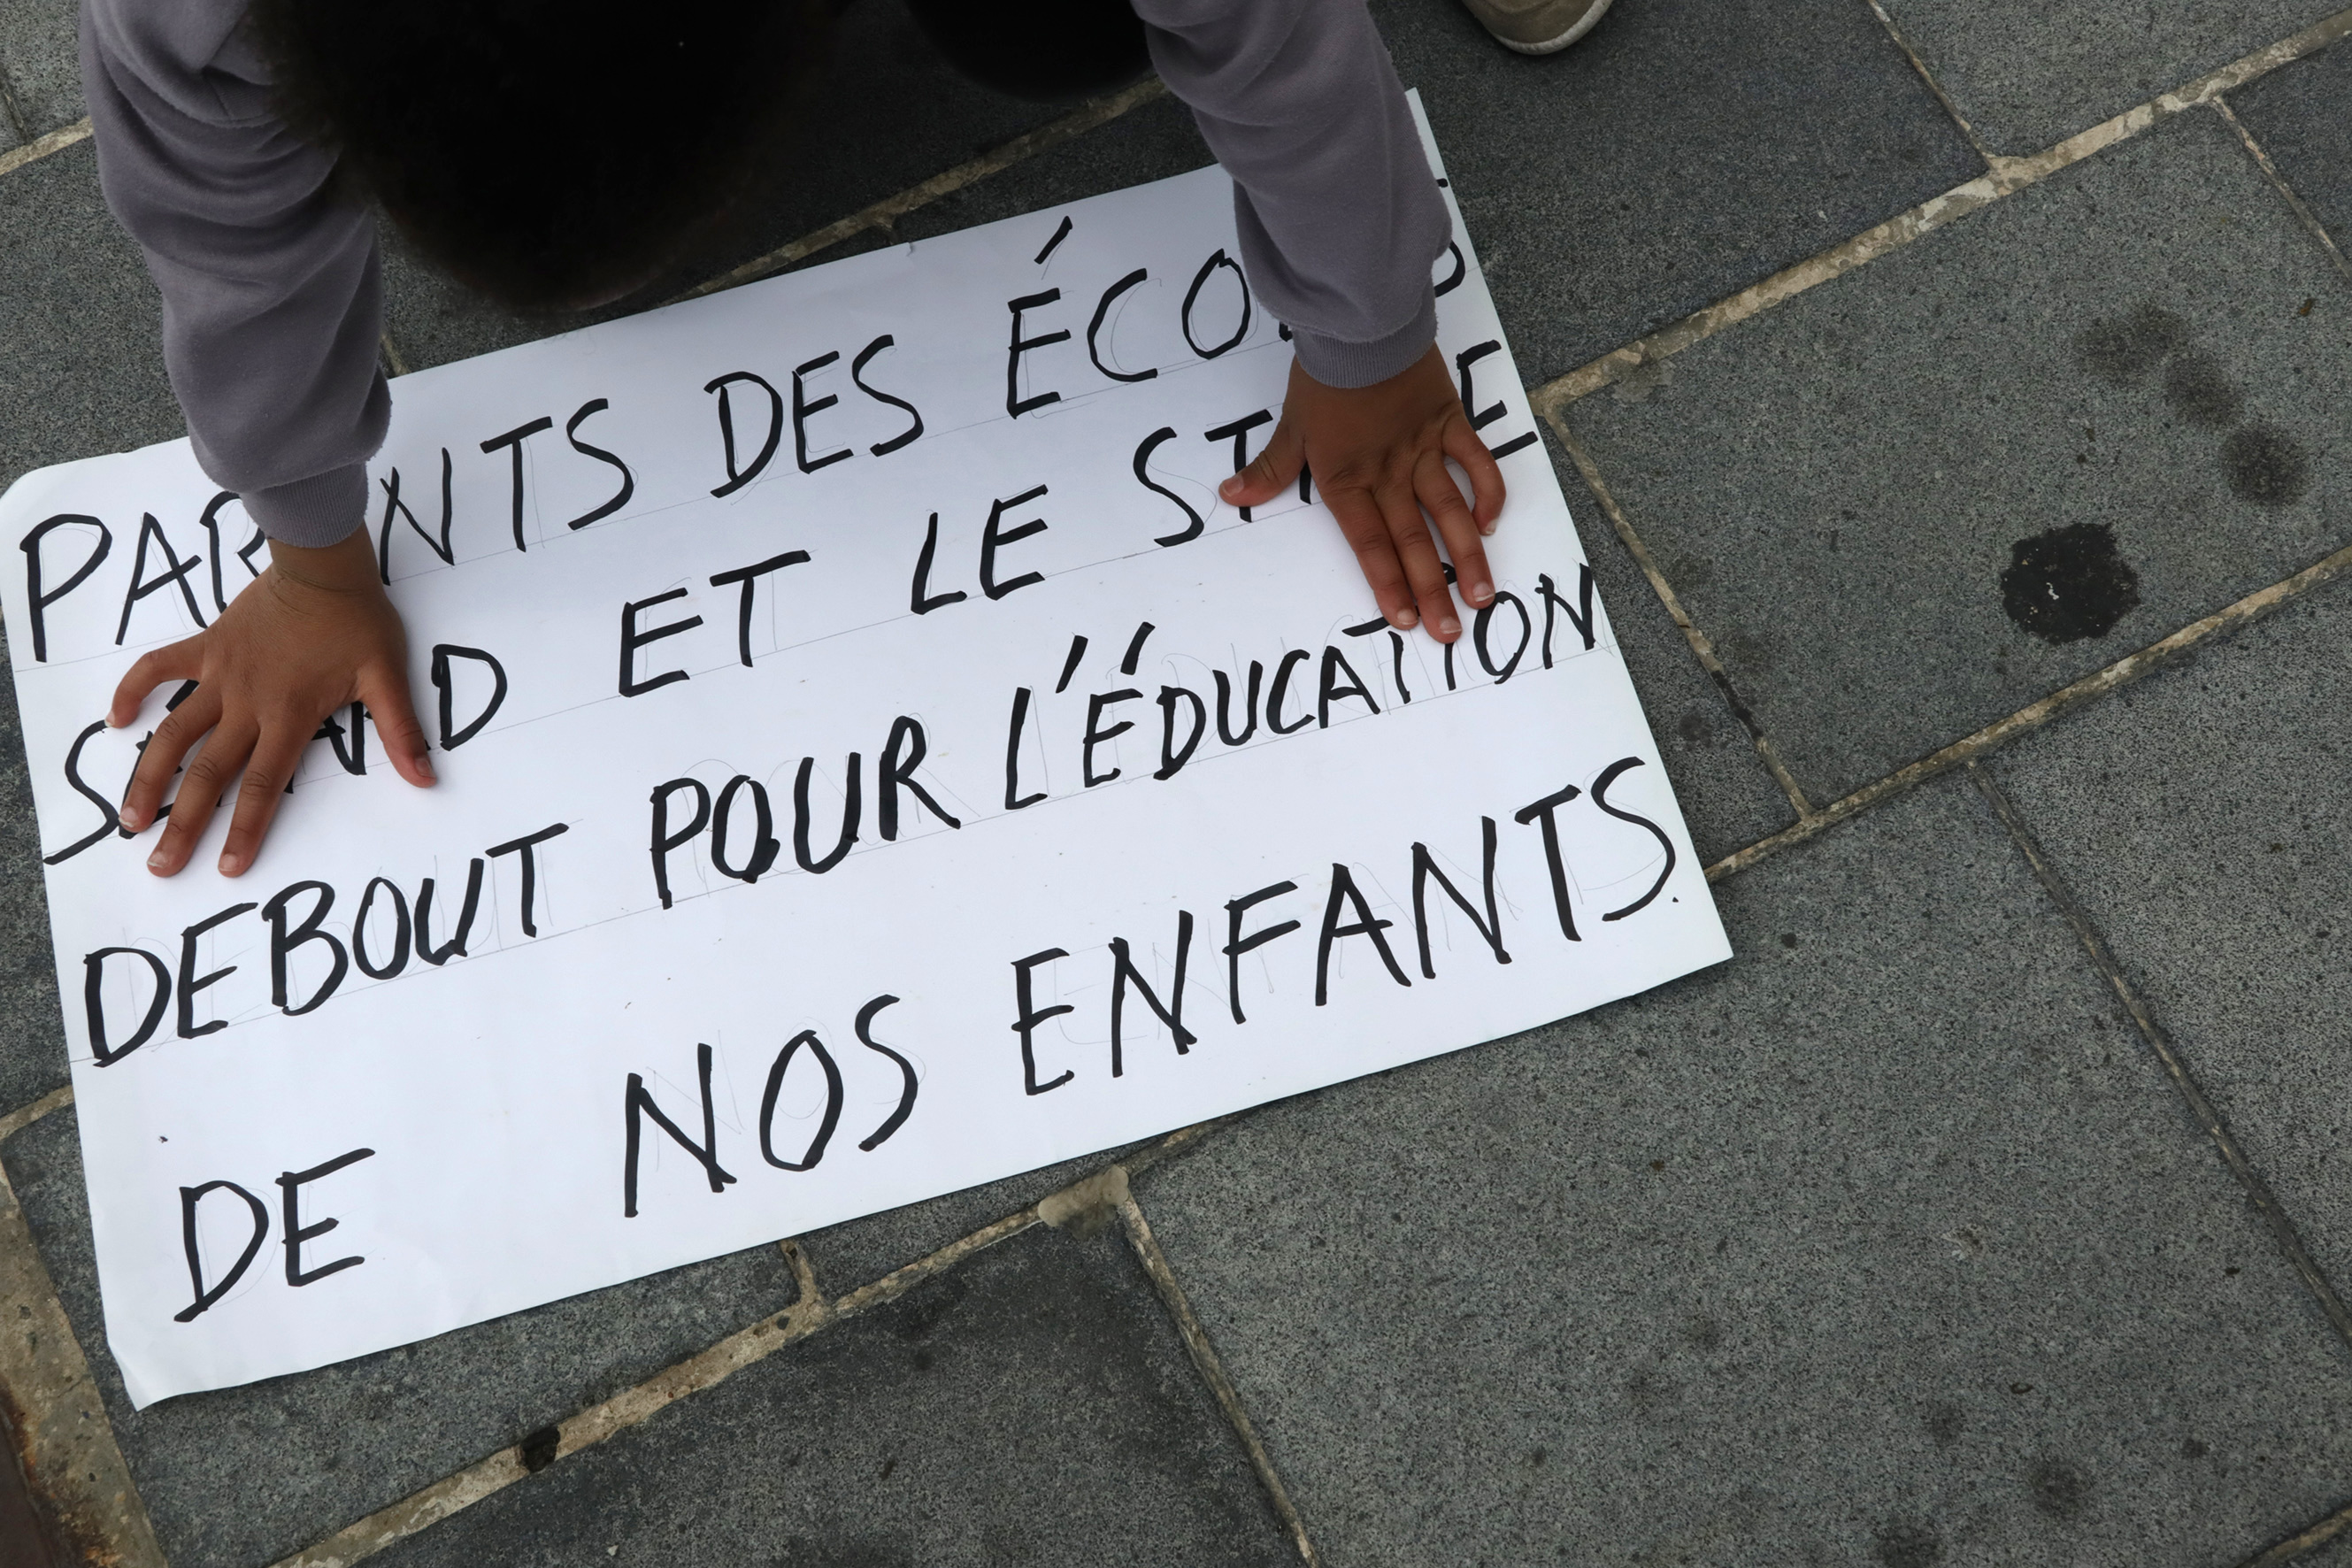 PARENTS DES ÉCOLES
ET LE
DEBOUT POUR L'ÉDUCATION
DE NOS ENFANTS.